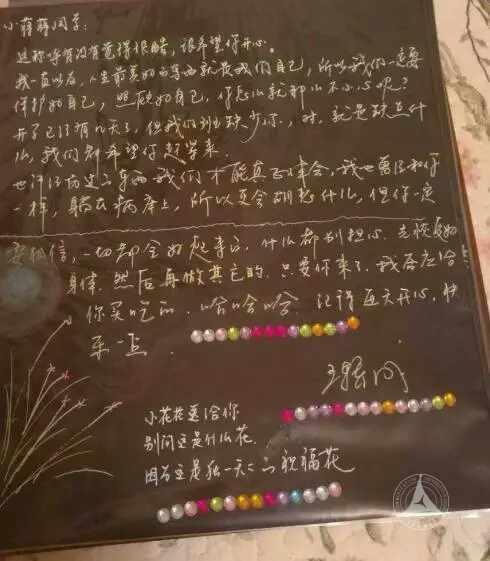 小薛薛同学：
这称呼有没有觉得很酷，很希望你开心。
我一直以为，人生最美的东西就是我们自己，所以我们一定要
保护好自己，照顾好自己，你怎么就那么不小心呢？
开了已经有几天了，但我们班缺少你，对，就是缺点什
么，我们都希望你赶紧来。
也许经历过的东西我们才能真正体会，我也曾经和你
一样，躺在病床上，所以更会胡想什么，但你一定
要相信，一切都会好起来的，什么都别担心，先恢复好
身体，然后再做其它的，只要你来了，我答应给
你买吃的，哈哈哈，记得每天开心，快
乐一点
小花花送给你
别问这是什么花
因为这是独一无二的祝福花